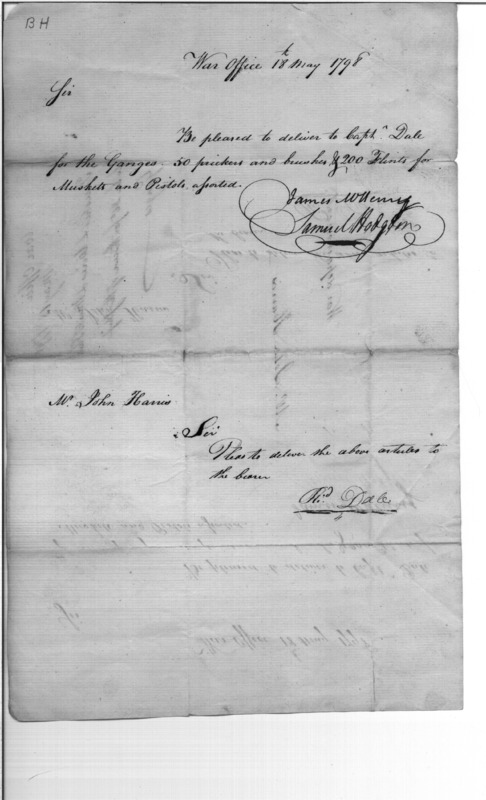 BH
War Office 18th May 1798
Sir
Be pleased to deliver to Captn. Dale
for the Ganges 50 prickers and brushes & 200 Flints for
Muskets and Pistols assorted.
James McHenry
Samuel Hodgdon
Mr. John Harris
Sir
Please to deliver the above articles to
the bearer
Rid. Dale